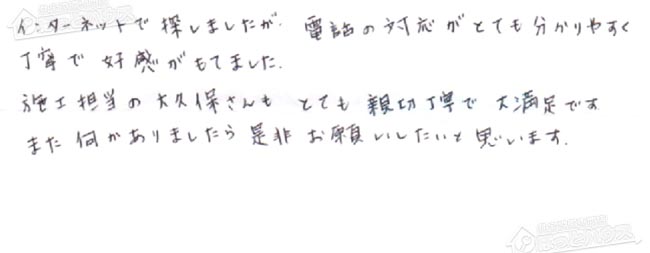 インターネットで探しましたが、電話の対応がとても分かりやすく
丁寧で好感がもてました。
施工担当の大久保さんも とても親切丁寧で大満足です
また何かありましたら是非お願いしたいと思います。